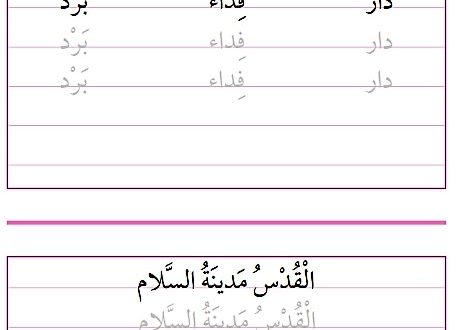 دار فِداء بَرْد
دار فِداء بَرْد
دار فِداء بَرْد
الْقُدْسُ مَدينَةُ السَّلام
الْقُدْسُ مَدينَةُ السَّلام